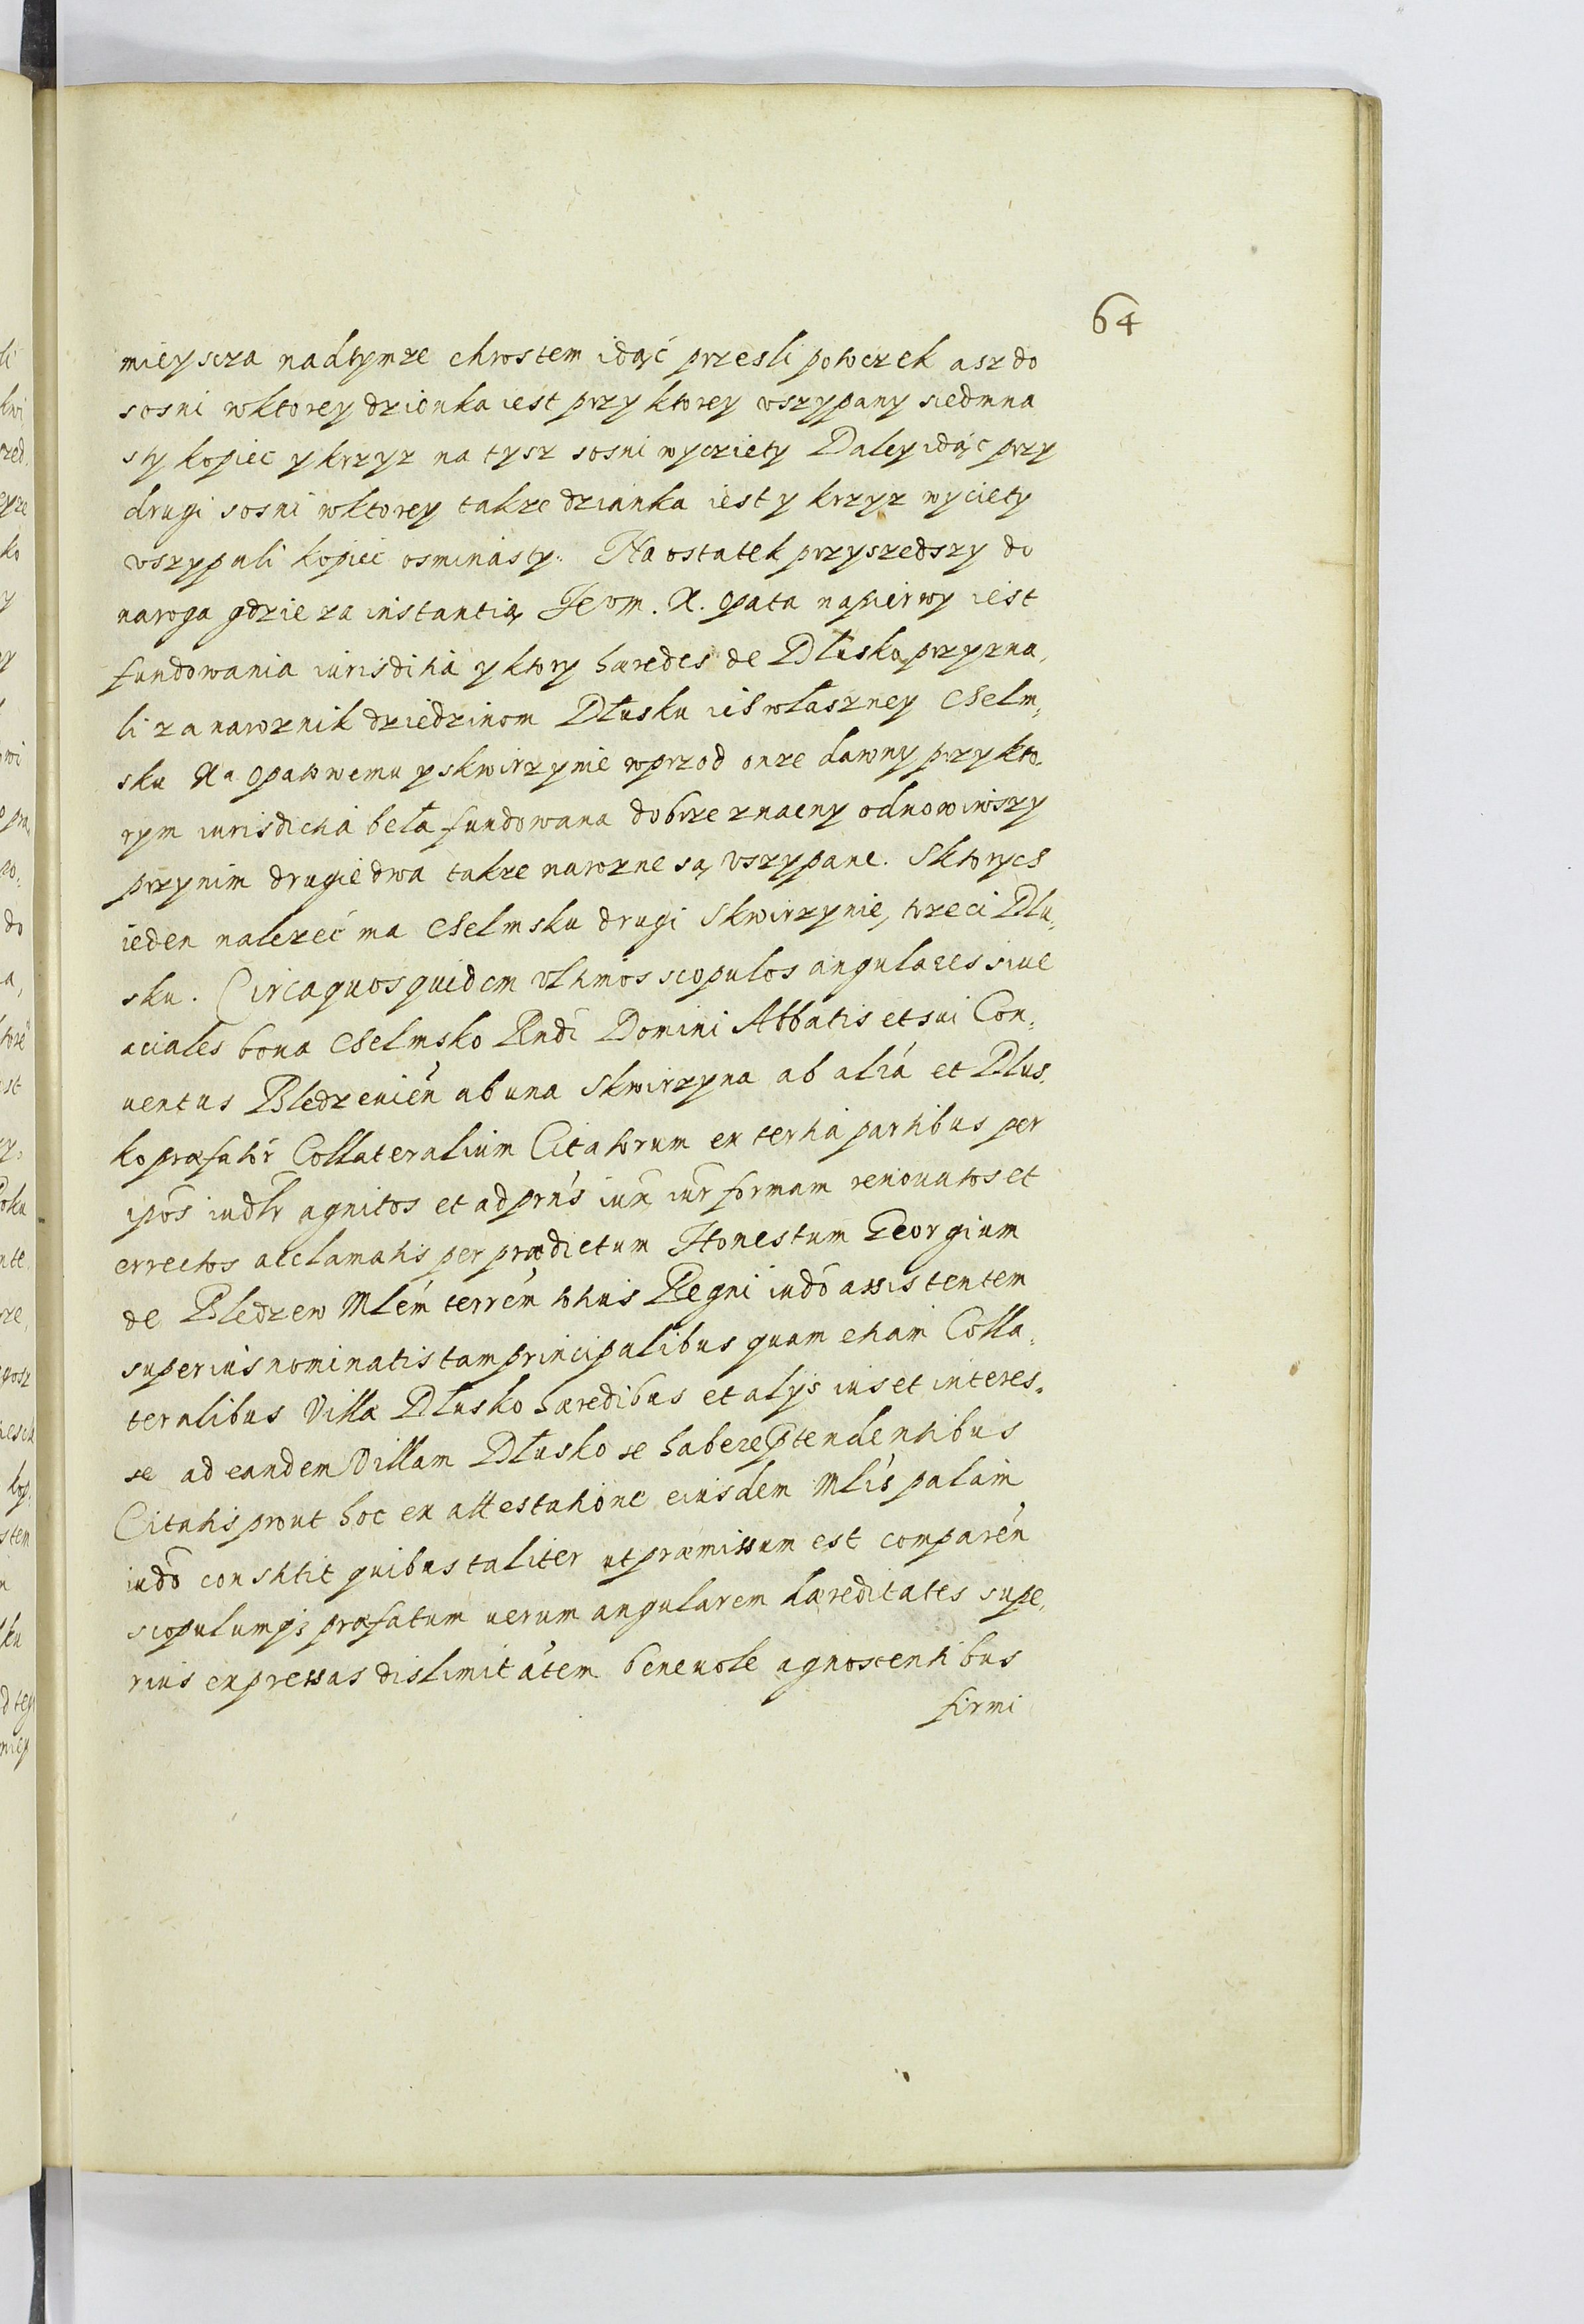 64
mieyscza nadtymze chrostem idąć przesli potoczek asz do
sosni wktorey dzionka iest przy ktorey vszypany siedmna
sty kopiec y krzyz na tysz sosni wycziety Daley idąc przy
drugi sosni wktorey takze dzianka iest y krzyz wyciety
vszypali kopiec osminasty. Na ostatek przyszedszy do
naroga gdzie za instantią Jeom. X. Opata napierwy iest
fundowania iurisditia y ktory hæredes de Dłusko przyzna,
li za naroznik dziedzinom Dłusku ich właszney Chelm,
sku Xa Opatowemu y skwirzynie wprzod onze dawny przy kto,
rym iurisdicha beła fundowana dobrze znacny odnowiwszy
przynim drugie dwa takze narozne są vszypane. Sktorych
ieden nalezeć ma Chelmsku drugi Skwirzynie, trzeci Dlu,
sku. Circa quos quidem vltimos scopulos angulares siue
aciales bona Chelmsko Rndi Domini Abbatis et sui Con,
uentus Bledzeuien ab una Skwirzyna ab alia et Dlus,
ko præfator Collateralium Citatorum ex tertia partibus per
ipos iudtr agnitos et ad prns iun iur formam renouatos et
errectos acclamatis per prædictum Honestum Georgium
de Bledzew Mlem terrem totius Regni iudo assistentem
superius nominatis tam principalibus quam etiam Colla,
teralibus Villæ Dłusko hæredibus et alys ius et interes,
se ad eandem Villam Dłusko se habere ptendentibus
Citatis prout hoc ex attestatione eiusdem Mlis palam
iudo constitit quibus taliter ut præmissum est comparen
scopulumqз præfatum uerum angularem hæreditates supe,
rius expressas dislimitatem beneuole agnoscentibus
firmi